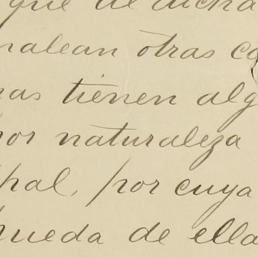 que de dicha
nalean otras ca
nas tienen alg
por naturaleza
pal, por cuya
pueda de ella